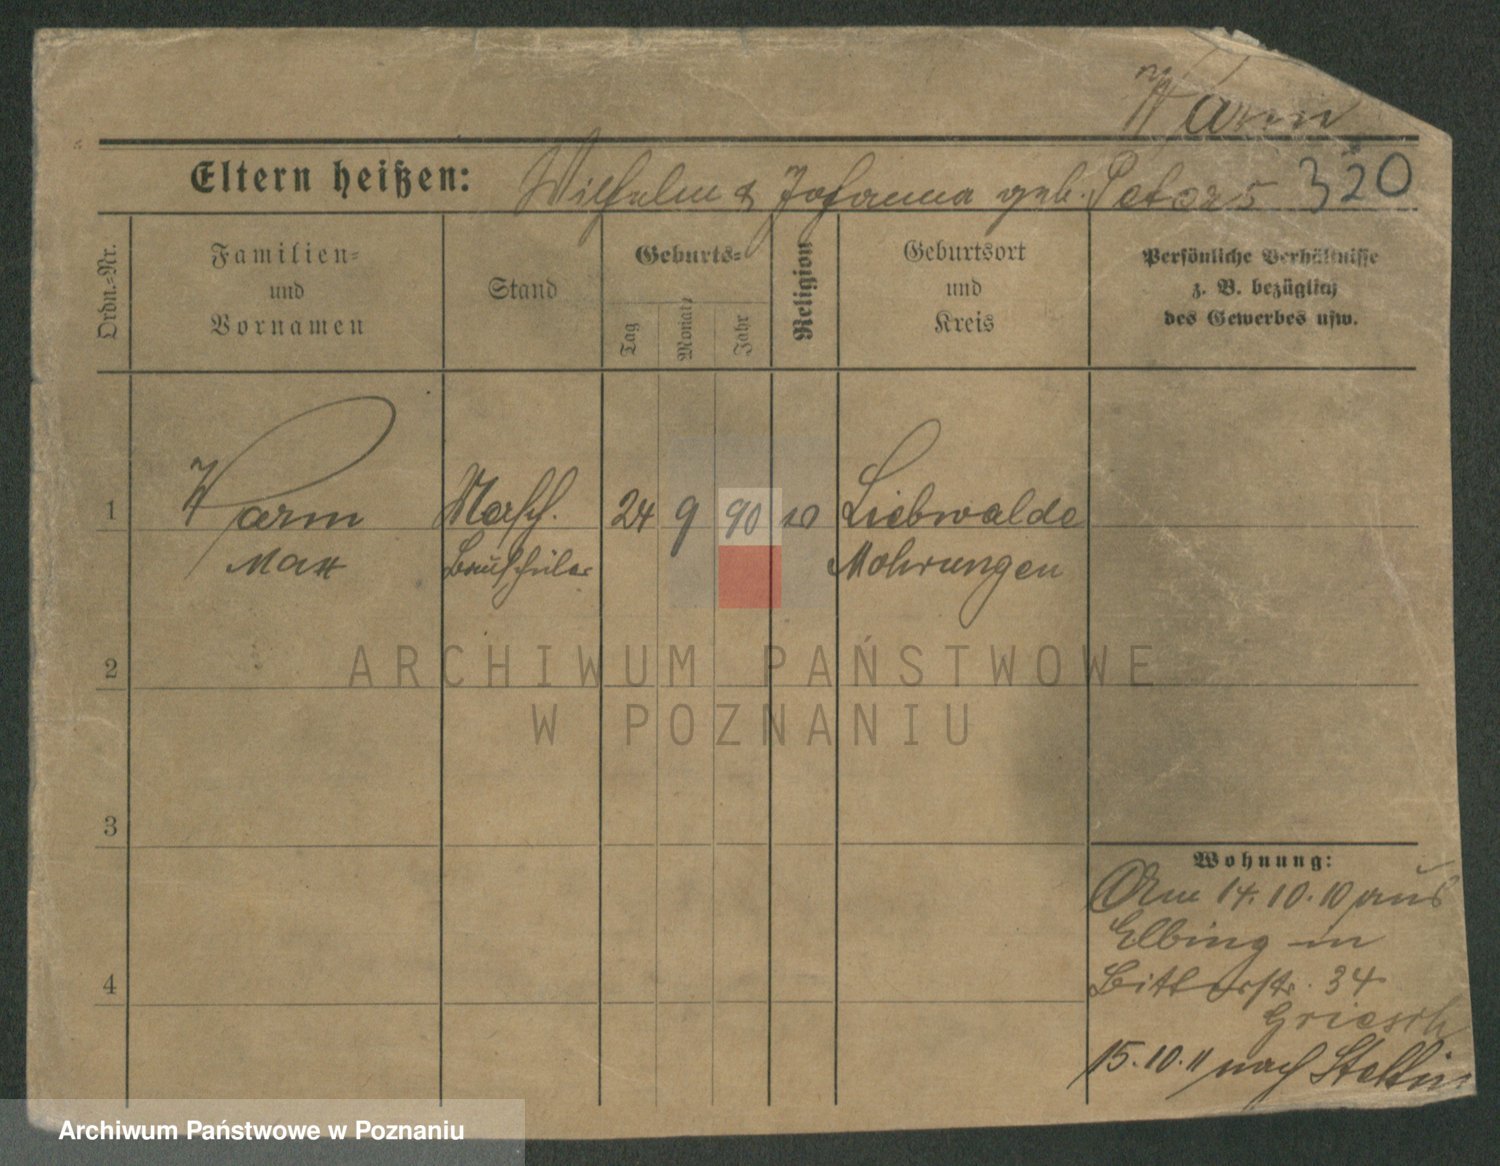 Warm
Eltern heißen: Wilhelm & Johanna geb. Peters 320
Ordn.-Nr.
Familien- und Vornamen
Stand
Geburts-
Tag
Monat
Jahr
Religion
Geburtsort und Kreis
Persönliche Verhältnisse
z. B. bezüglich
des Gewerbes usw.
1 Warm Masch. 24 9 90 Liebwalde
Max Bauschüler Mohrungen
2
ARCHIWUM PAŃSTWOWE
W POZNANIU
3
Wohnung:
Am 14.10.10 aus
Elbing in
4
Bitterstr. 34
Griesch
15.10.11 nach Stettin
Archiwum Państwowe w Poznaniu